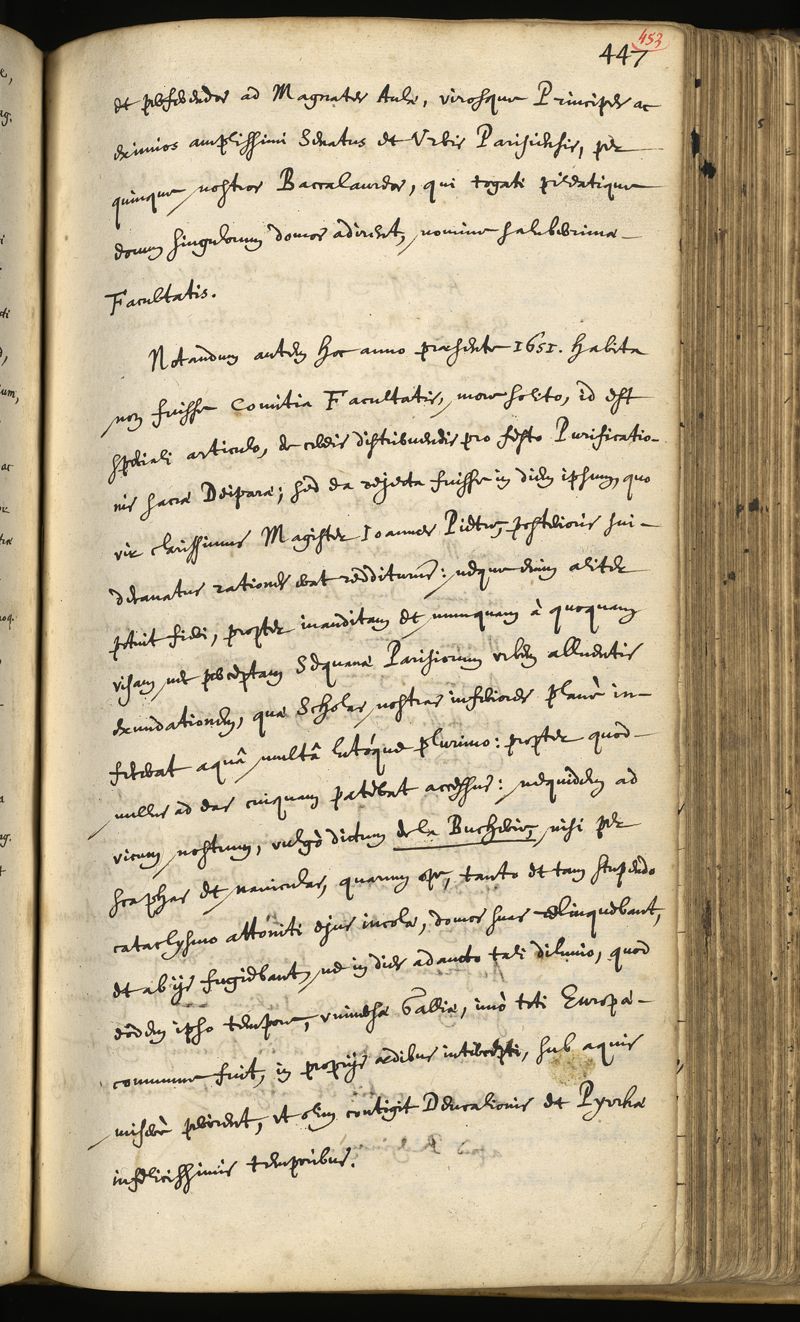 453
447
et perferendos ad Magnates Aulæ, virosque Principes ac
eximios amplissimi Senatus et Vrbis Parisiensis, per
quinque nostros Baccalaureos, qui togati pileatique
domum singulorum domos adirent, nomine saluberrimæ
Facultatis.
Notandum autem hoc anno præsente 1651. habita
non fuisse Comitia Facultatis, more solito, id est
speciali articulo, de cereis distribuendis pro festo Purificatio-
nis sacræ Deiparæ; sed ea rejecta fuisse in diem ipsum, quo
vir clarissimus Magister Ioannes Pietre, posterioris sui
decanatus rationes erat redditurus: neque enim aliter
potuit fieri, propter inauditam et nunquam à quoquam
visam nec perceptam Sequanæ Parisiorum vrbem alluentis
exundationem, quæ Scholas nostras inferiores planè in-
ficiebat aquâ multâ lutóque plurimo: propter quod
nullus ad eas cuiquam patebat accessus: nequidem ad
vicum nostrum, vulgò dictum de la Bucherie, nisi per
scaphas et naviculas, quarum ope, tanto et tam stupendo
cataclysmo attoniti ejus incolæ, domos suas relinquebant,
et ab ijs fugiebant, ne in dies adaucto tali diluvio, quod
eodem ipso tempore, vniversæ Galliæ, imò toti Europæ
commune fuit, in proprijs ædibus intercepti, sub aquis
miserè perirent, vt olim contigit Deucalionis et Pyrrhæ
infelicissimis temporibus.